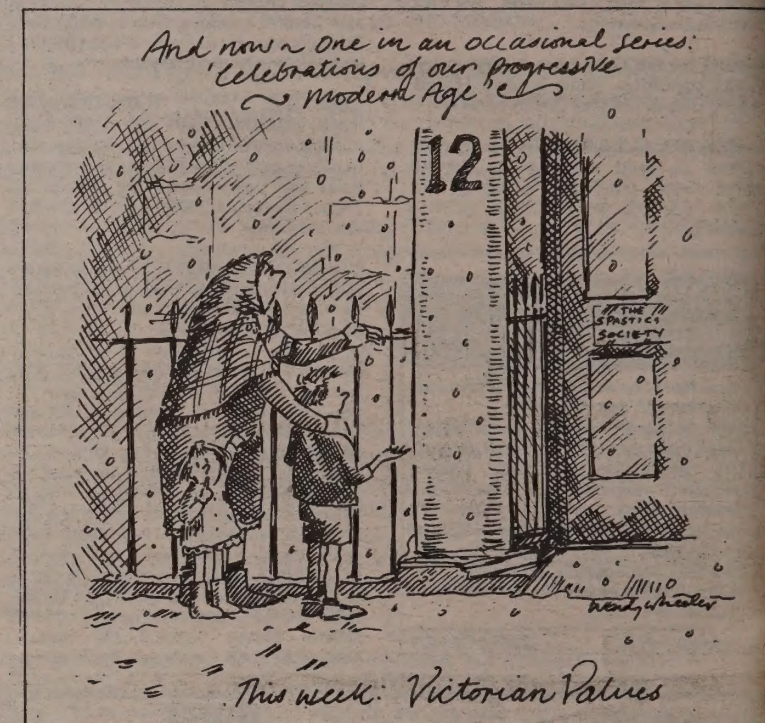 And now ~ one in an occasional series:
'Celebrations of our progressive
Modern Age'
12
THE
SPASTICS
SOCIETY
Wendy Wheeler
This week: Victorian Values